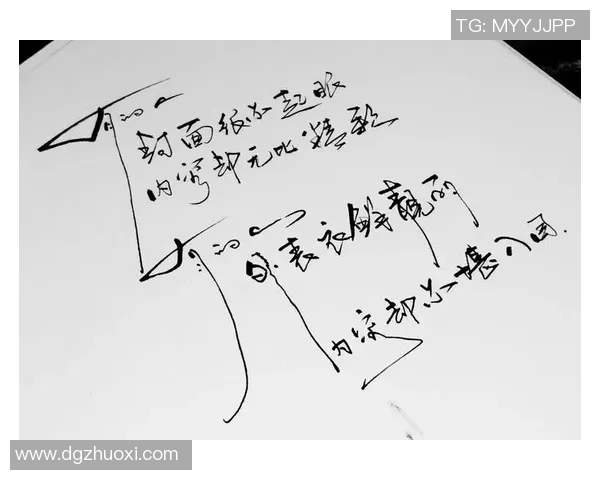 TG: MYYJJPP
有的人
封面纸不起眼
内容却无比精彩
有的人
外表衣鲜靓丽
内容却不堪入目.
www.dgzhuoxi.com